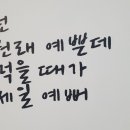 넌
원래 예쁜데
먹을때가
제일 예뻐